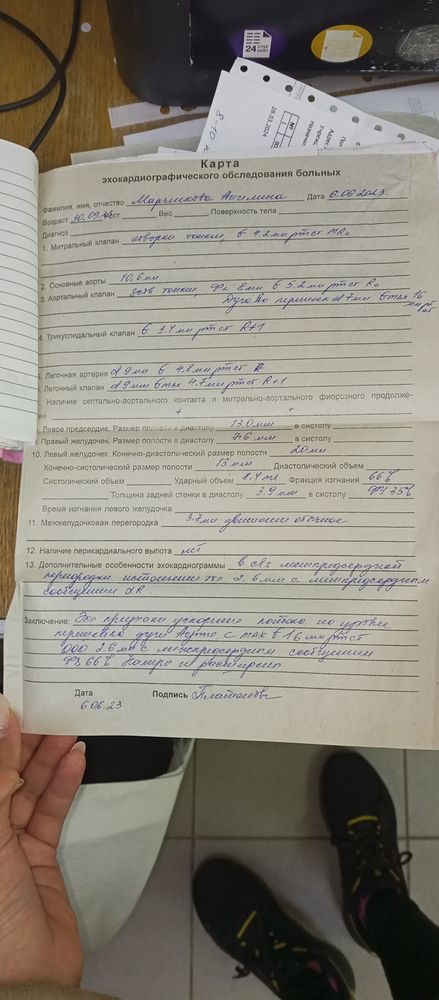 24
28.03.2024
Карта
эхокардиографического обследования больных
Фамилия, имя, отчество Ангелина Дата 6.06 2023
Возраст Вес Поверхность тела
Диагноз
1. Митральный клапан створки тонкие, в 4.2 мм рт ст MR0
2. Основные аорты 10,6 мм
3. Аортальный клапан тонкие, Фк 8 мм в 5.2 мм рт ст R0
Дуга Ao перешеек d 7 мм вmax 16 мм рт ст
4. Трикуспидальный клапан в рт ст R+1
Легочная артерия d 9 мм в 4.8 мм рт ст
Легочный клапан d 9 мм вmax 4.7 мм рт ст R+1
Наличие септально-аортального контакта и митрально-аортального фиорозного продолже-
ния + +
Левое предсердие. Размер полости в диастолу 13.0 мм в систолу
Правый желудочек. Размер полости в диастолу 7.6 мм в систолу
10. Левый желудочек. Конечно-диастолический размер полости 20 мм
Конечно-систолический размер полости 13 мм Диастолический объем
Систолический объем Ударный объем Фракция изгнания 66%
Толщина задней стенки в диастолу 3.9 мм в систолу ФУ 35%
Время изгнания левого желудочка
11. Межжелудочковая перегородка 3.7 мм движение обычное
12. Наличие перикардиального выпота нет
13. Дополнительные особенности эхокардиограммы в с/з межпредсердной
перегородки истончение 2.6 мм с межпредсердным
сообщением
Заключение: Эхо признаки ускорение потока на уровне
перешейка дуги Аорты с max в 16 мм рт ст
ООО 2.6 мм с межпредсердным сообщением
66% Камеры не расширены
Дата Подпись
6.06.23